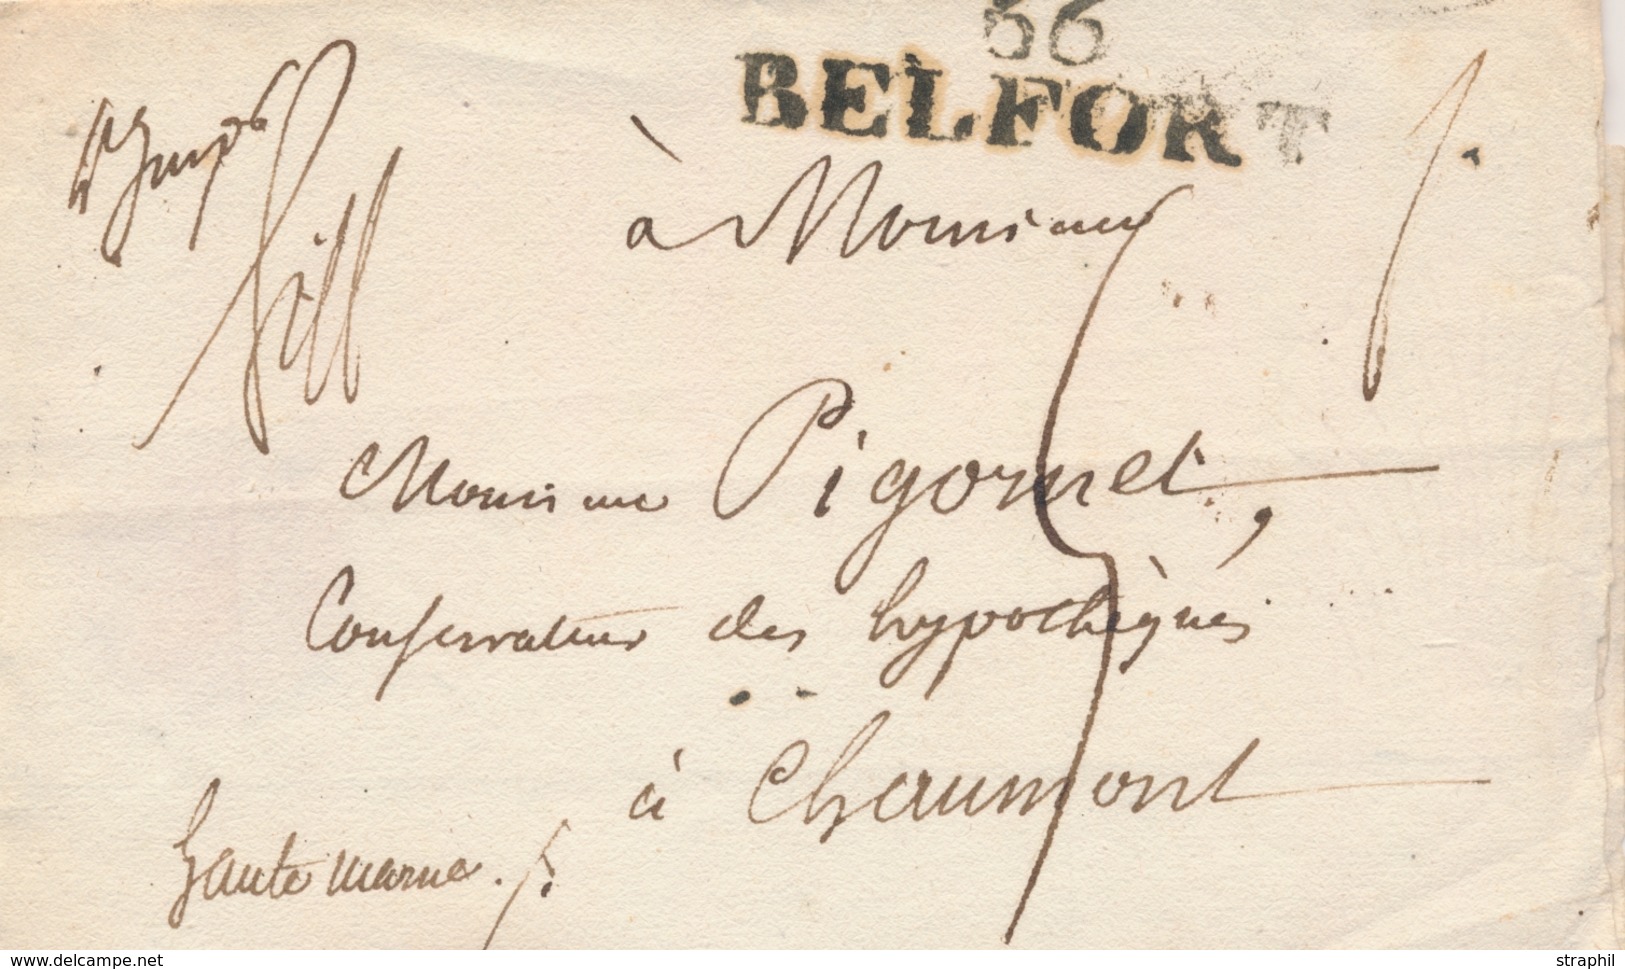 66
BELFORT
à Monsieur
Monsieur Pigornet,
Conservateur des hypothèques
à Chaumont
haute marne.
www.delcampe.net
straphil